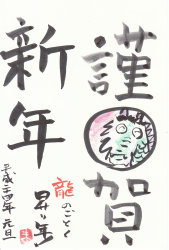 謹賀
新年
龍のごとく
昇り年
平成二四年元旦